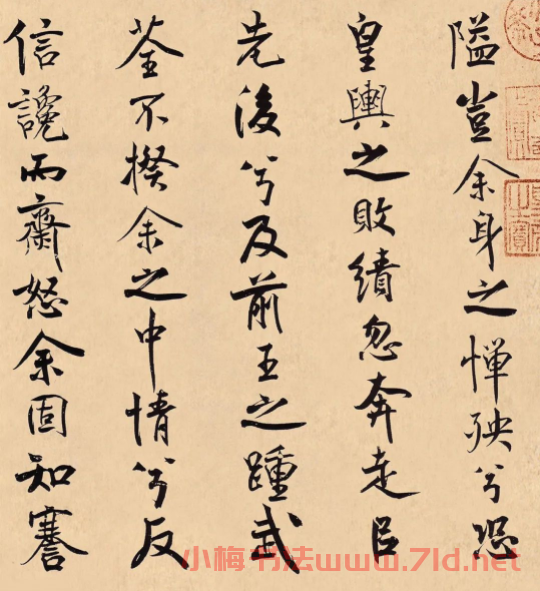 隘豈余身之憚殃兮恐
皇輿之敗績忽奔走㠯
先後兮及前王之踵武
荃不揆余之中情兮反
信讒而齌怒余固知謇
小梅书法www.7ld.net